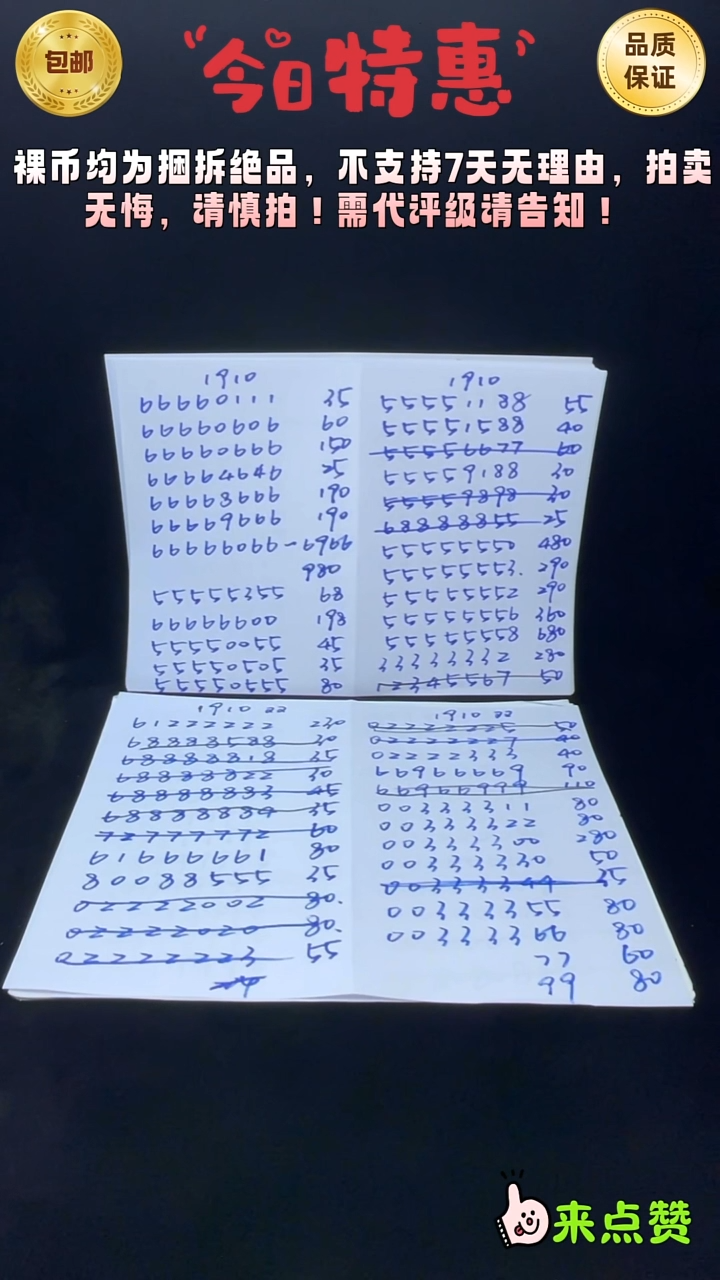 包邮
“今日特惠”
品质
保证
裸币均为捆拆绝品，不支持7天无理由，拍卖
无悔，请慎拍！需代评级请告知！
1910
66660111 35
66660606 60
66660666 150
66664646 25
66668666 190
66669666 190
66666066-6966
980
55555355 68
66666600 198
55550055 45
55550505 35
55550555 80
1910
55551188 55
55551588 40
55556677 60
55559188 30
55559898 30
68888855 25
55555550 480
55555553. 290
55555552 290
55555556 360
55555558 680
33333332 280
12345567 50
1910 22
61222222 230
68888588 30
68888818 35
68888822 30
68888883 45
68888884 35
72777772 60
61666661 80
80088555 35
02222002 80.
02222020 80.
02222223 55
1910 22
02222225 50
02222227 40
02222333 40
66966669 90
66966999 110
00333311 80
00333322 80
00333300 280
00333330 50
00333344 35
00333355 80
00333366 80
77 60
99 80
来点赞